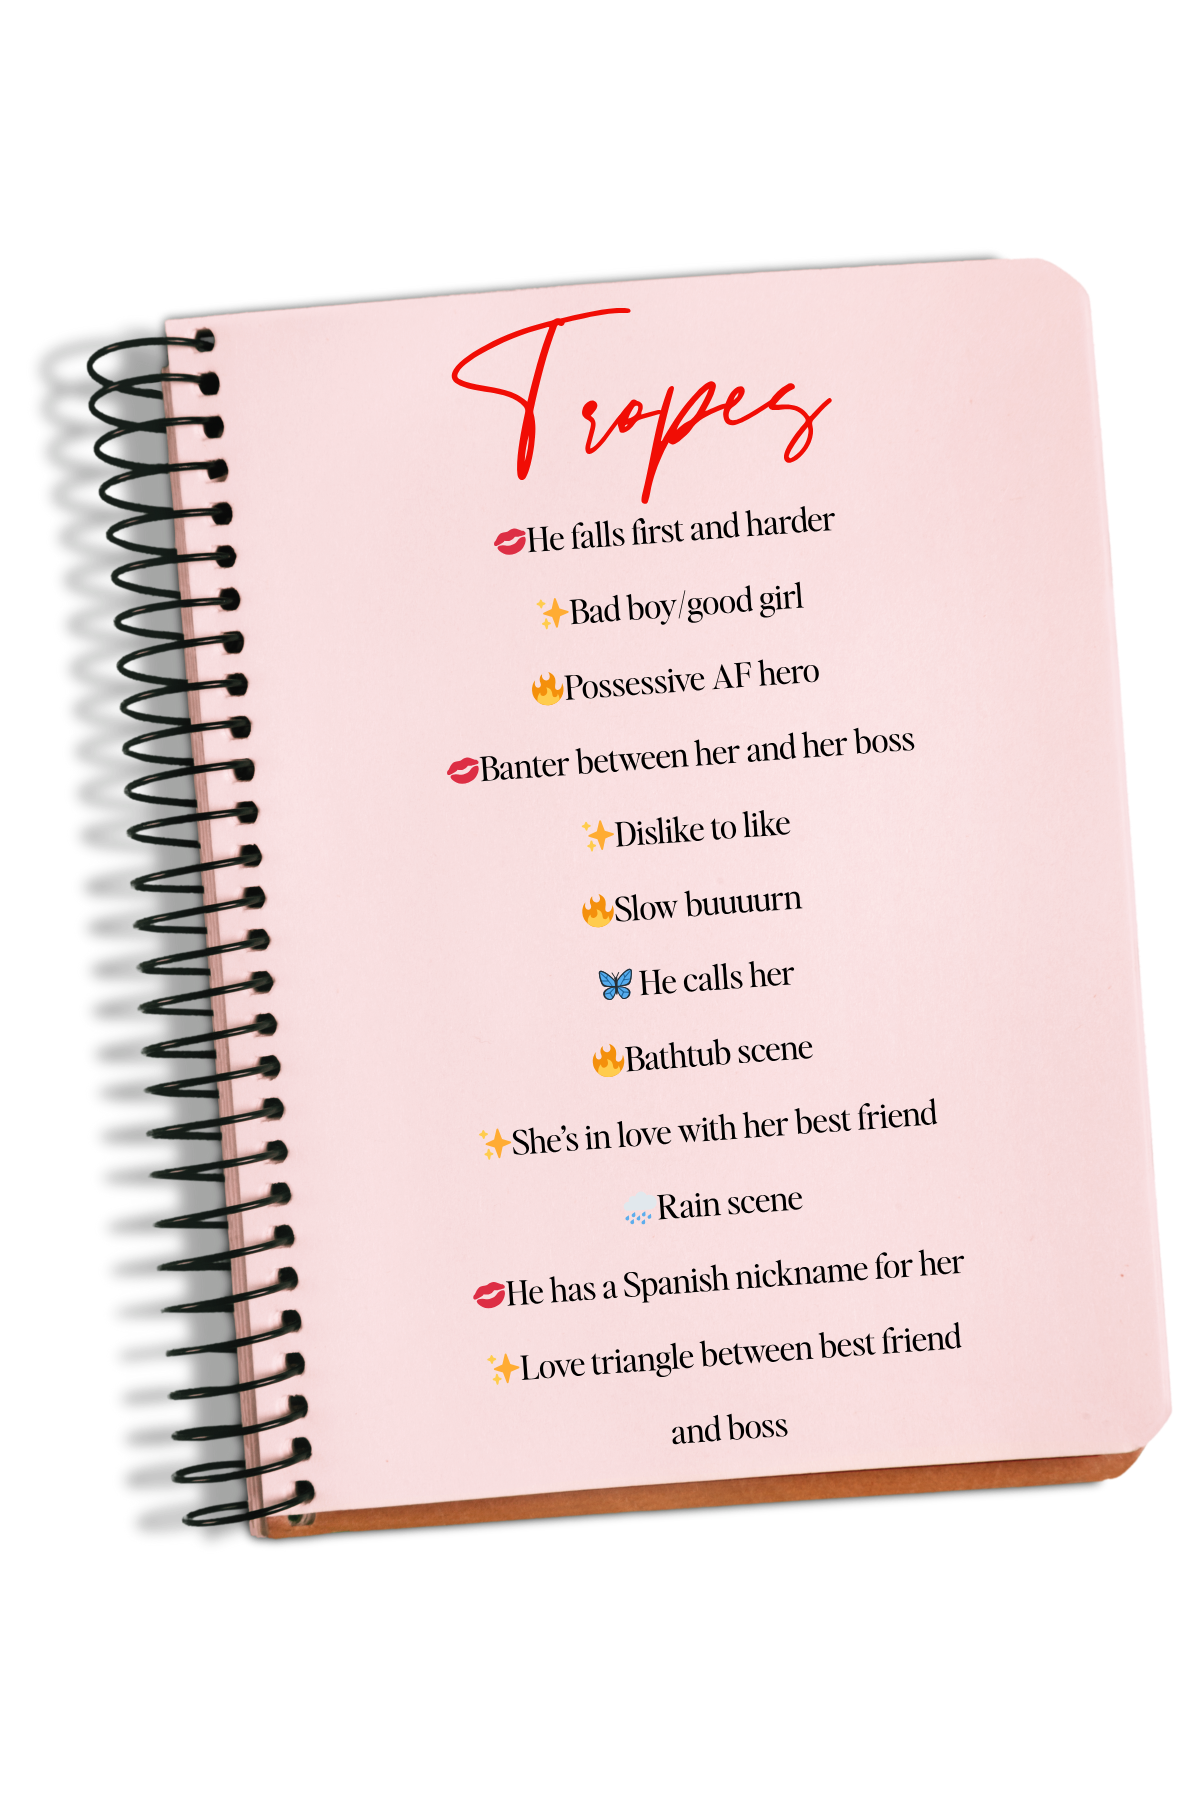 Tropes
💋He falls first and harder
✨Bad boy/good girl
🔥Possessive AF hero
💋Banter between her and her boss
✨Dislike to like
🔥Slow buuuurn
🦋 He calls her
🔥Bathtub scene
✨She's in love with her best friend
🌧️Rain scene
💋He has a Spanish nickname for her
✨Love triangle between best friend
and boss